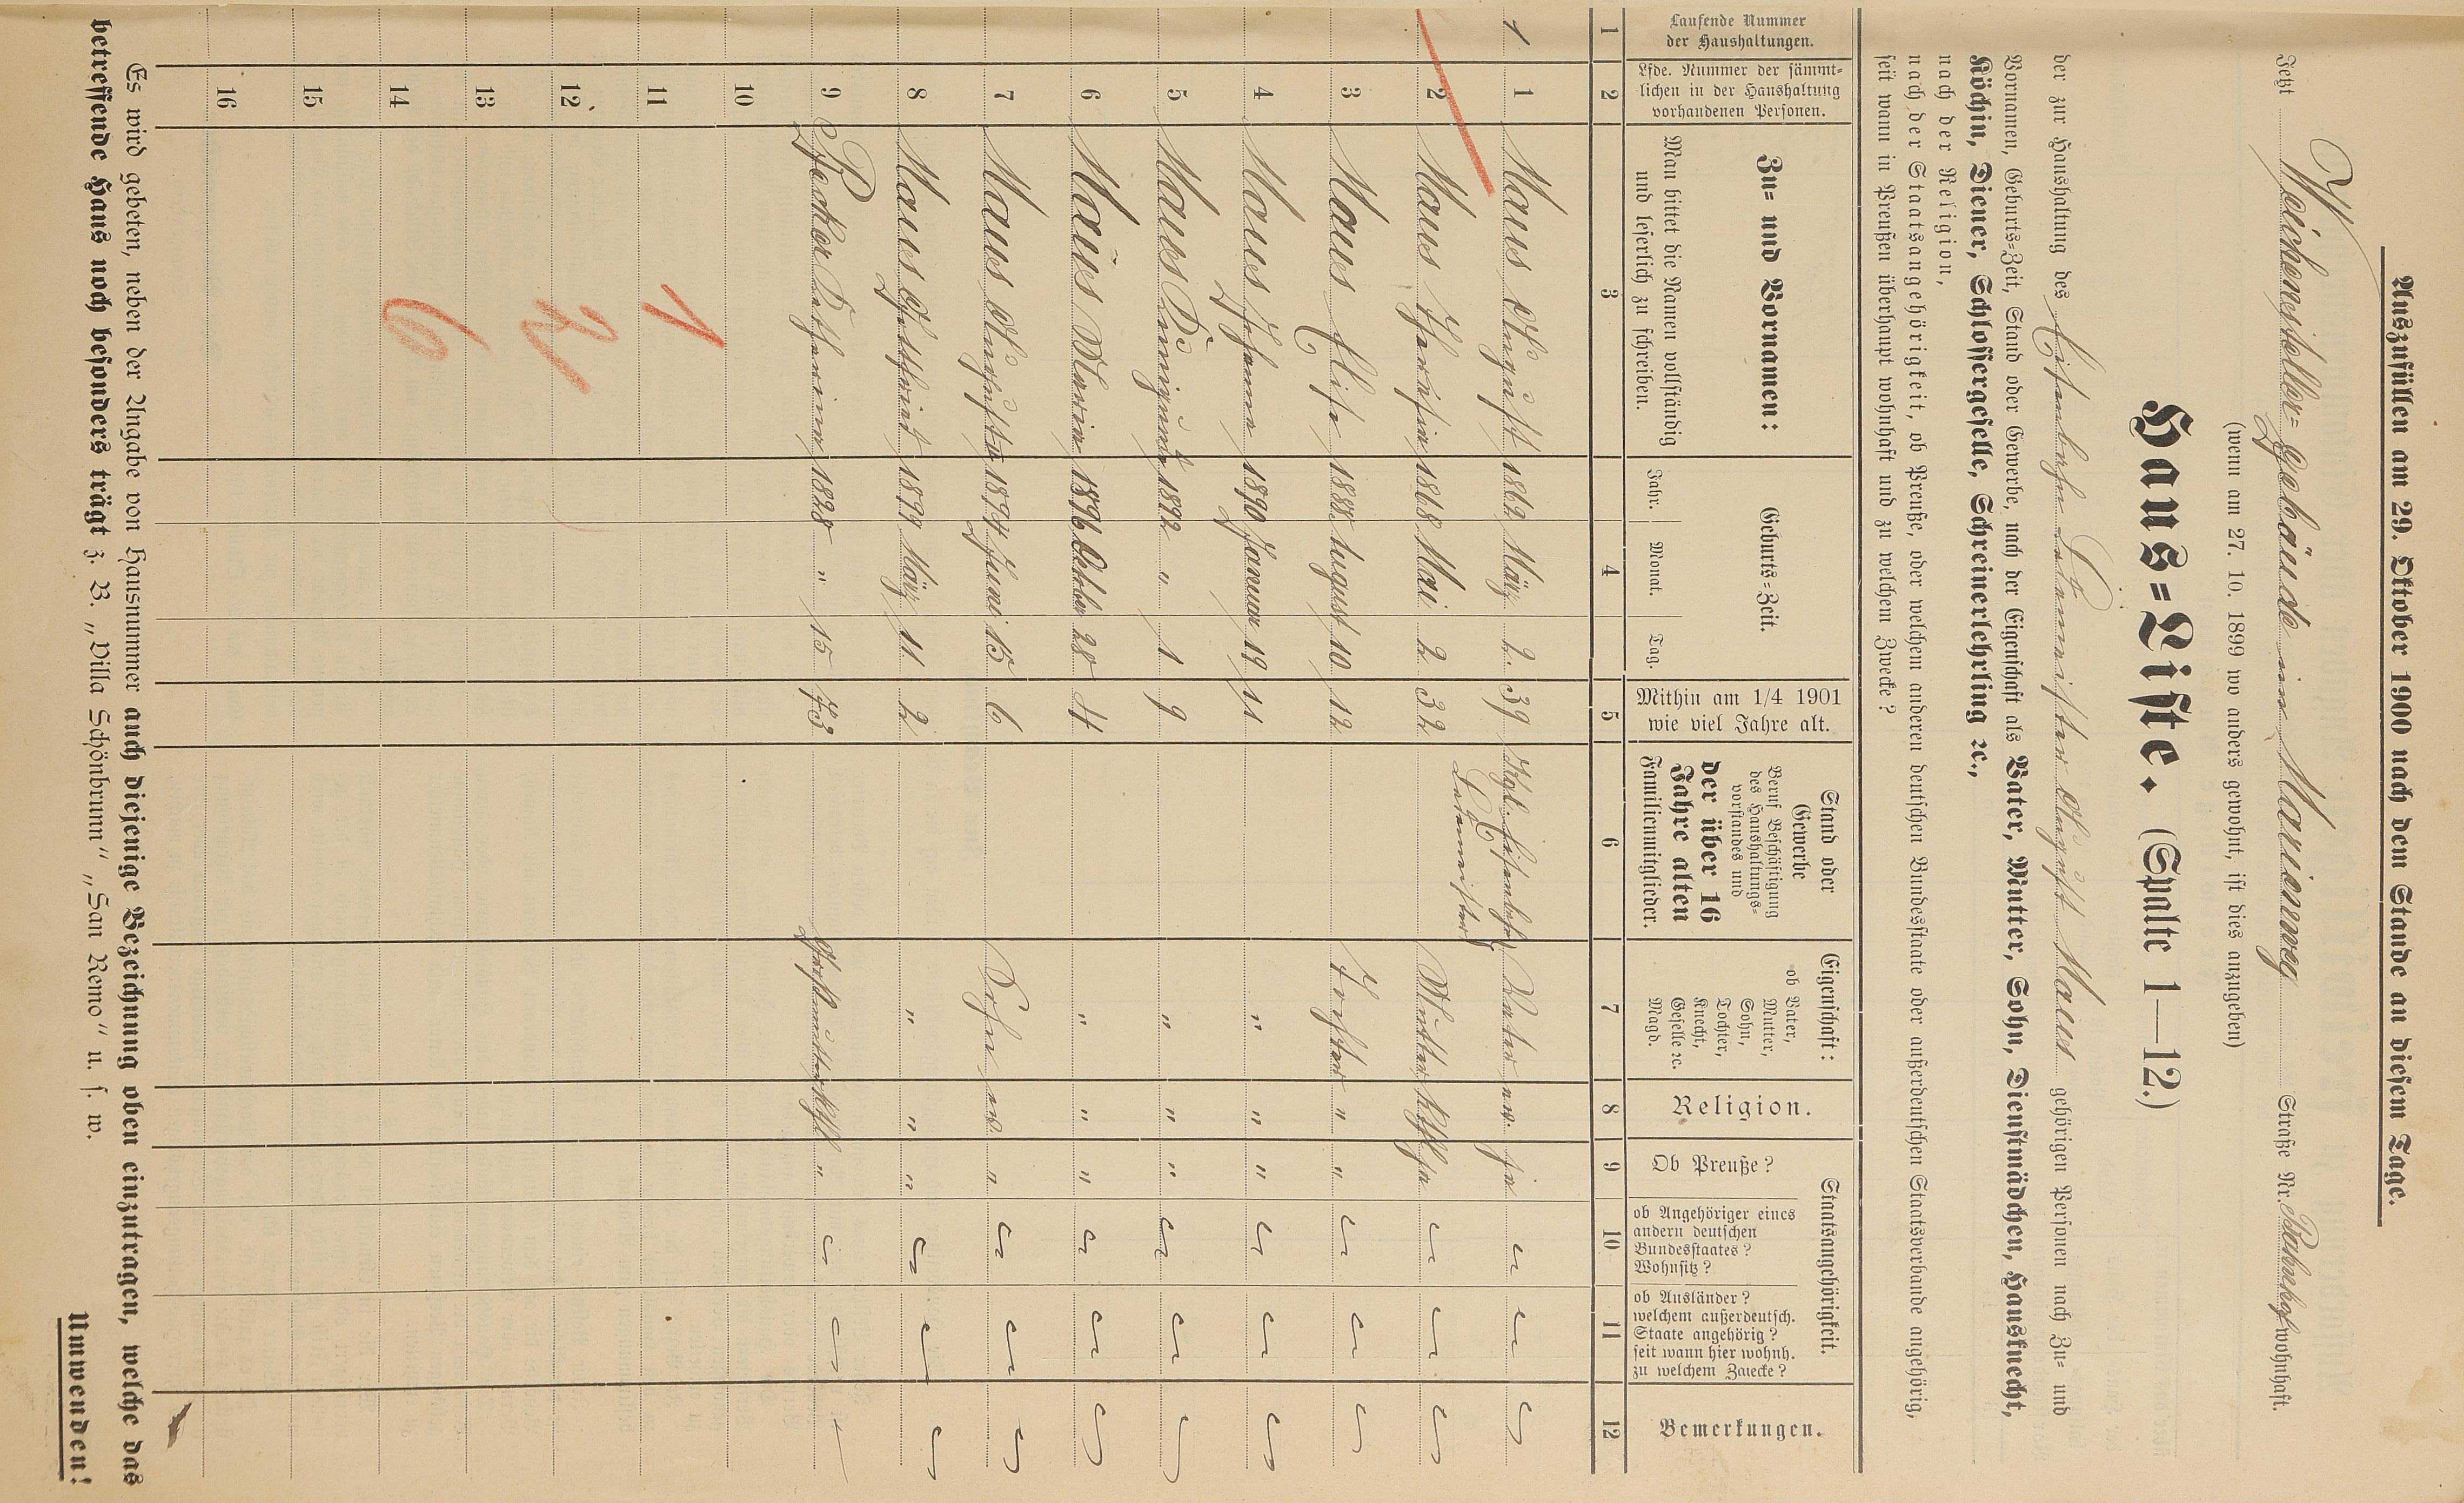 Auszufüllen am 29. Oktober 1900 nach dem Stande an diesem Tage.
Jetzt Weichensteller-Gebäude im Marienweg Straße Nr. Bahnhof wohnhaft.
(wenn am 27. 10. 1899 wo anders gewohnt, ist dies anzugeben)
Haus-Liste. (Spalte 1—12.)
der zur Haushaltung des Eisenbahn Lademeister August Maus gehörigen Personen nach Zu- und
Vornamen, Geburts-Zeit, Stand oder Gewerbe, nach der Eigenschaft als Vater, Mutter, Sohn, Dienstmädchen, Hausknecht,
Köchin, Diener, Schlossergeselle, Schreinerlehrling ec.,
nach der Religion,
nach der Staatsangehörigkeit, ob Preuße, oder welchem anderen deutschen Bundesstaate oder außerdeutschen Staatsverbande angehörig,
seit wann in Preußen überhaupt wohnhaft und zu welchem Zwecke?
Laufende Nummer der Haushaltungen.
Lfde. Nummer der sämmt-lichen in der Haushaltung vorhandenen Personen.
Zu- und Vornamen:
Man bittet die Namen vollständig und leserlich zu schreiben.
Geburts-Zeit.
Jahr. Monat. Tag.
Mithin am 1/4 1901 wie viel Jahre alt.
Stand oder Gewerbe
Beruf Beschäftigung des Haushaltungs-vorstandes und
der über 16 Jahre alten Familienmitglieder.
Eigenschaft:
ob Vater, Mutter, Sohn, Tochter, Knecht, Geselle ec. Magd.
Religion.
Staatsangehörigkeit.
Ob Preuße?
ob Angehöriger eines andern deutschen Bundesstaates? Wohnsitz?
ob Ausländer? welchem außerdeutsch. Staate angehörig? seit wann hier wohnh. zu welchem Zwecke?
Bemerkungen.
1 2 3 4 5 6 7 8 9 10 11 12
1 1 Maus August 1862 März 2. 39 Kgl. Eisenbahn Lademeister Vater ev. ja
2 Maus 1868 Mai 2 32 Mutter kath ja
3 Maus Elise 1888 August 10 12 Tochter " "
4 Maus Johanna 1890 Januar 19 11 " " "
5 Maus 1892 " 1 9 " " "
6 Maus Maria 1896 Oktober 28 4 " " "
7 Maus 1894 Juni 15 6 Sohn ev "
8 Maus 1899 März 11 2 " " "
9 1828 " 15 73 Großmutter kath "
10
11
12
13
14
15
16
1
2
6
Es wird gebeten, neben der Angabe von Hausnummer auch diejenige Bezeichnung oben einzutragen, welche das
betreffende Haus noch besonders trägt z. B. „Villa Schönbrunn“ „San Remo“ u. s. w.
Umwenden!